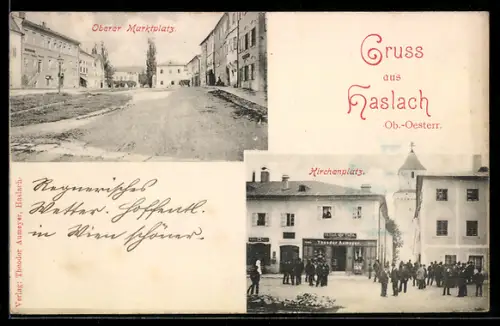 Oberer Marktplatz.
Gruss
aus
Haslach
Ob.-Oesterr.
Kirchenplatz.
Theodor Aumeyer.
Regnerisches
Wetter. Hoffentl.
in Wien schöner.
Verlag: Theodor Aumeyer, Haslach.